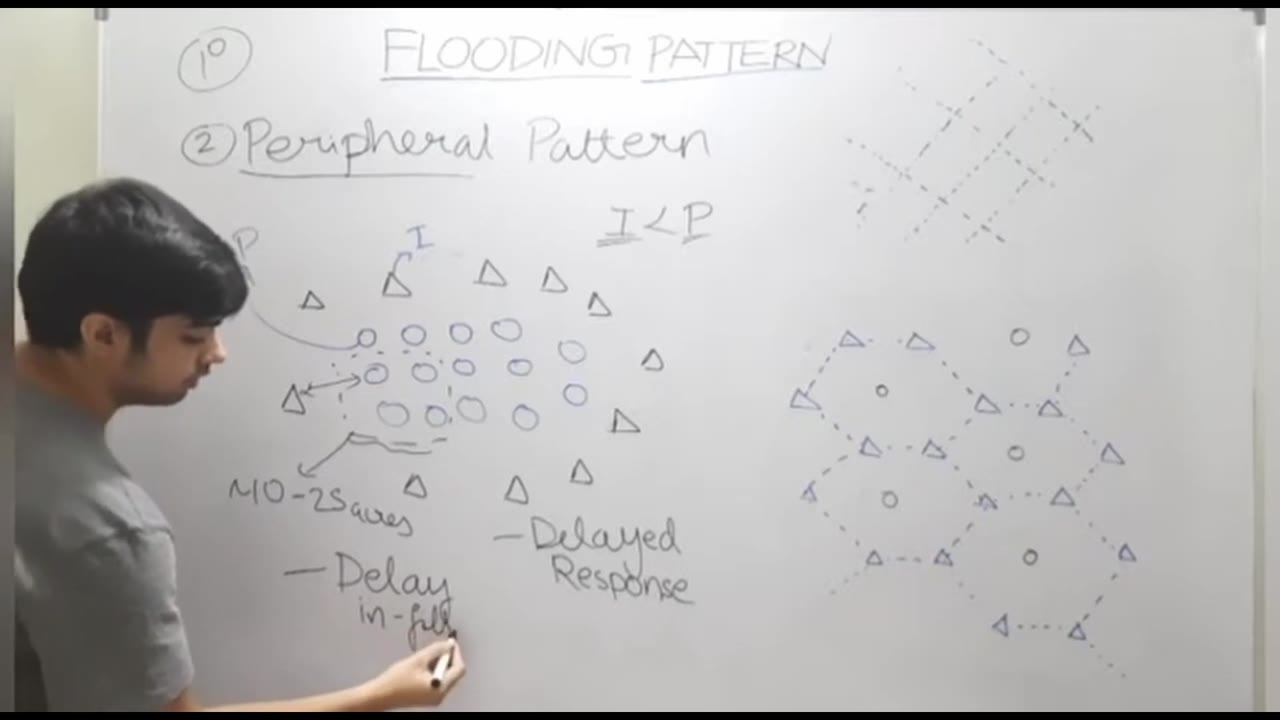 1⁰
FLOODING PATTERN
② Peripheral Pattern
I < P
P
I
~10-25 acres
— Delay
in-fill
— Delayed
Response